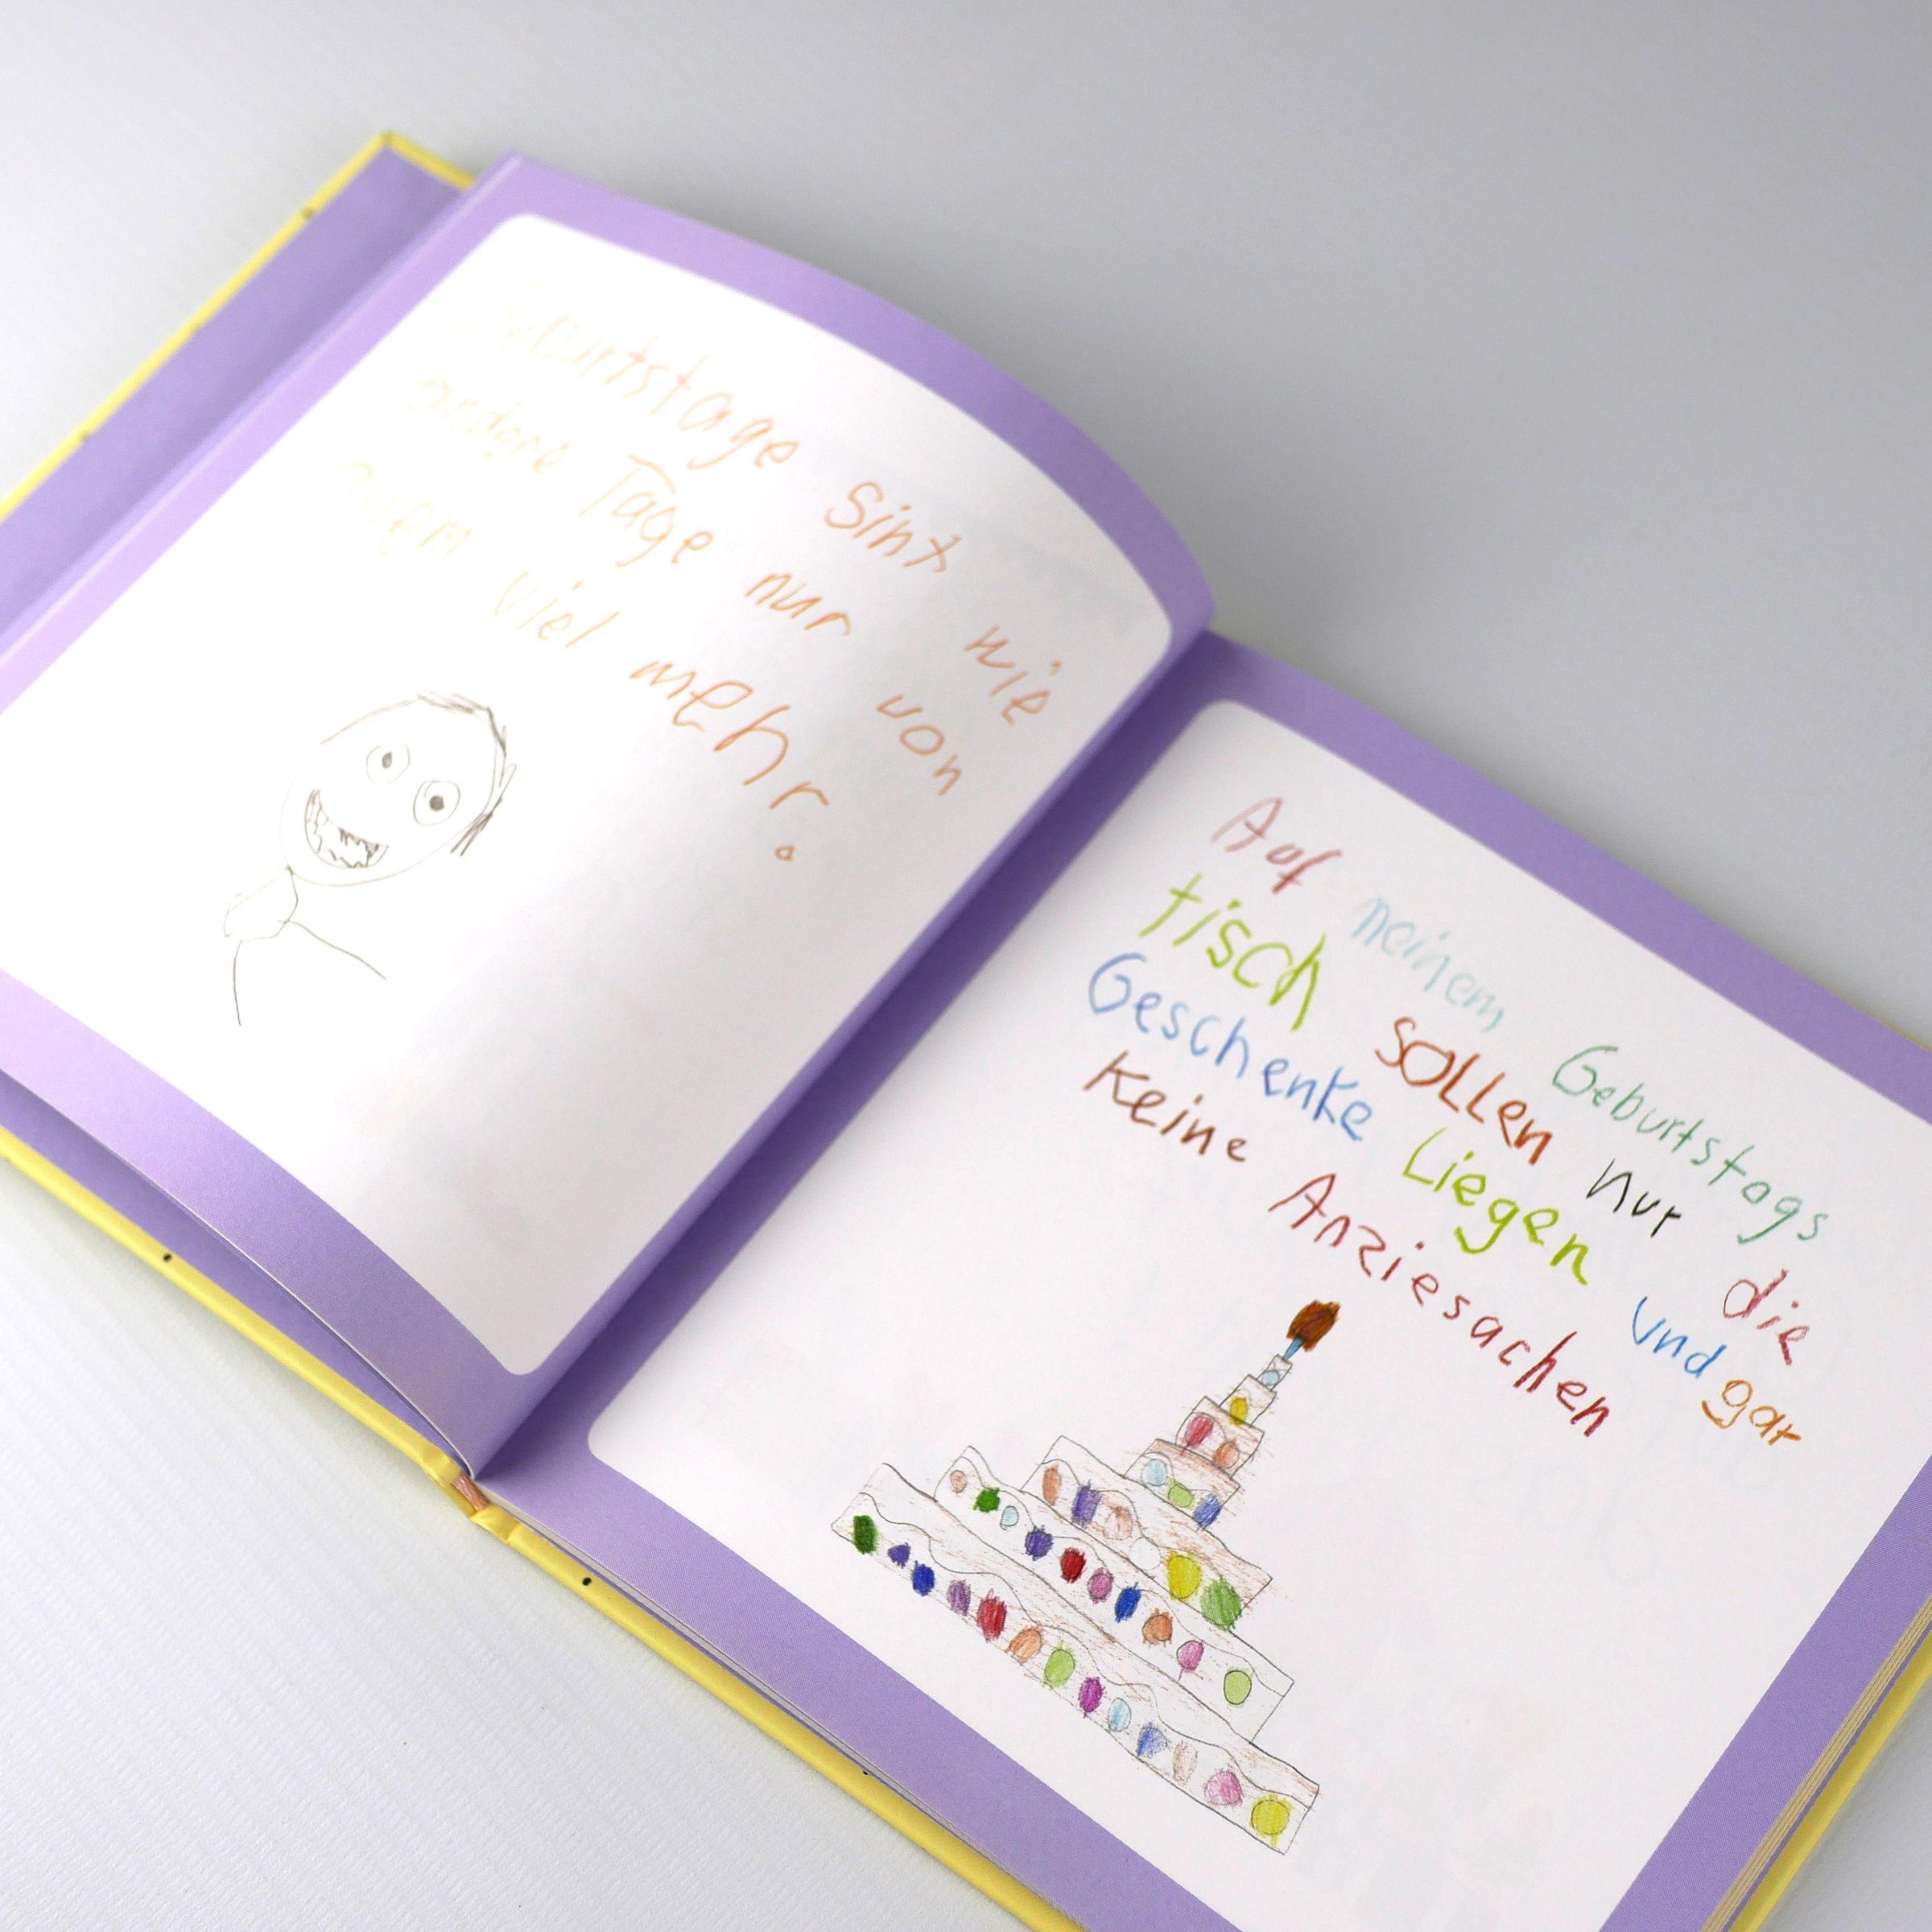 Geburtstage sint wie
andere Tage nur von
allem viel mehr.
Auf meinem Geburtstags
tisch sollen nur die
Geschenke Liegen und gar
Keine Anziesachen